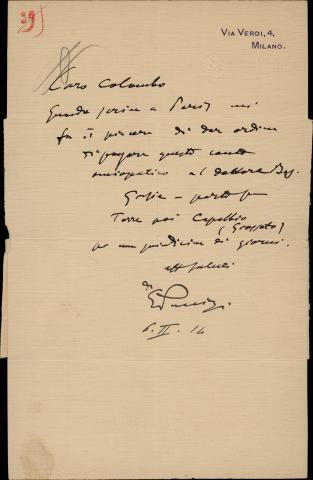 39)
VIA VERDI, 4,
MILANO.
Caro Colombo
Quando scrive a Parigi mi
fa il piacere di dar ordine
di pagare questo conto
omiopatico al dottore
Grazie — parto per
Torre poi Capalbio
(Grosseto)
per una quindicina di giorni.
aff saluti
da
GPuccini
6. II. 14